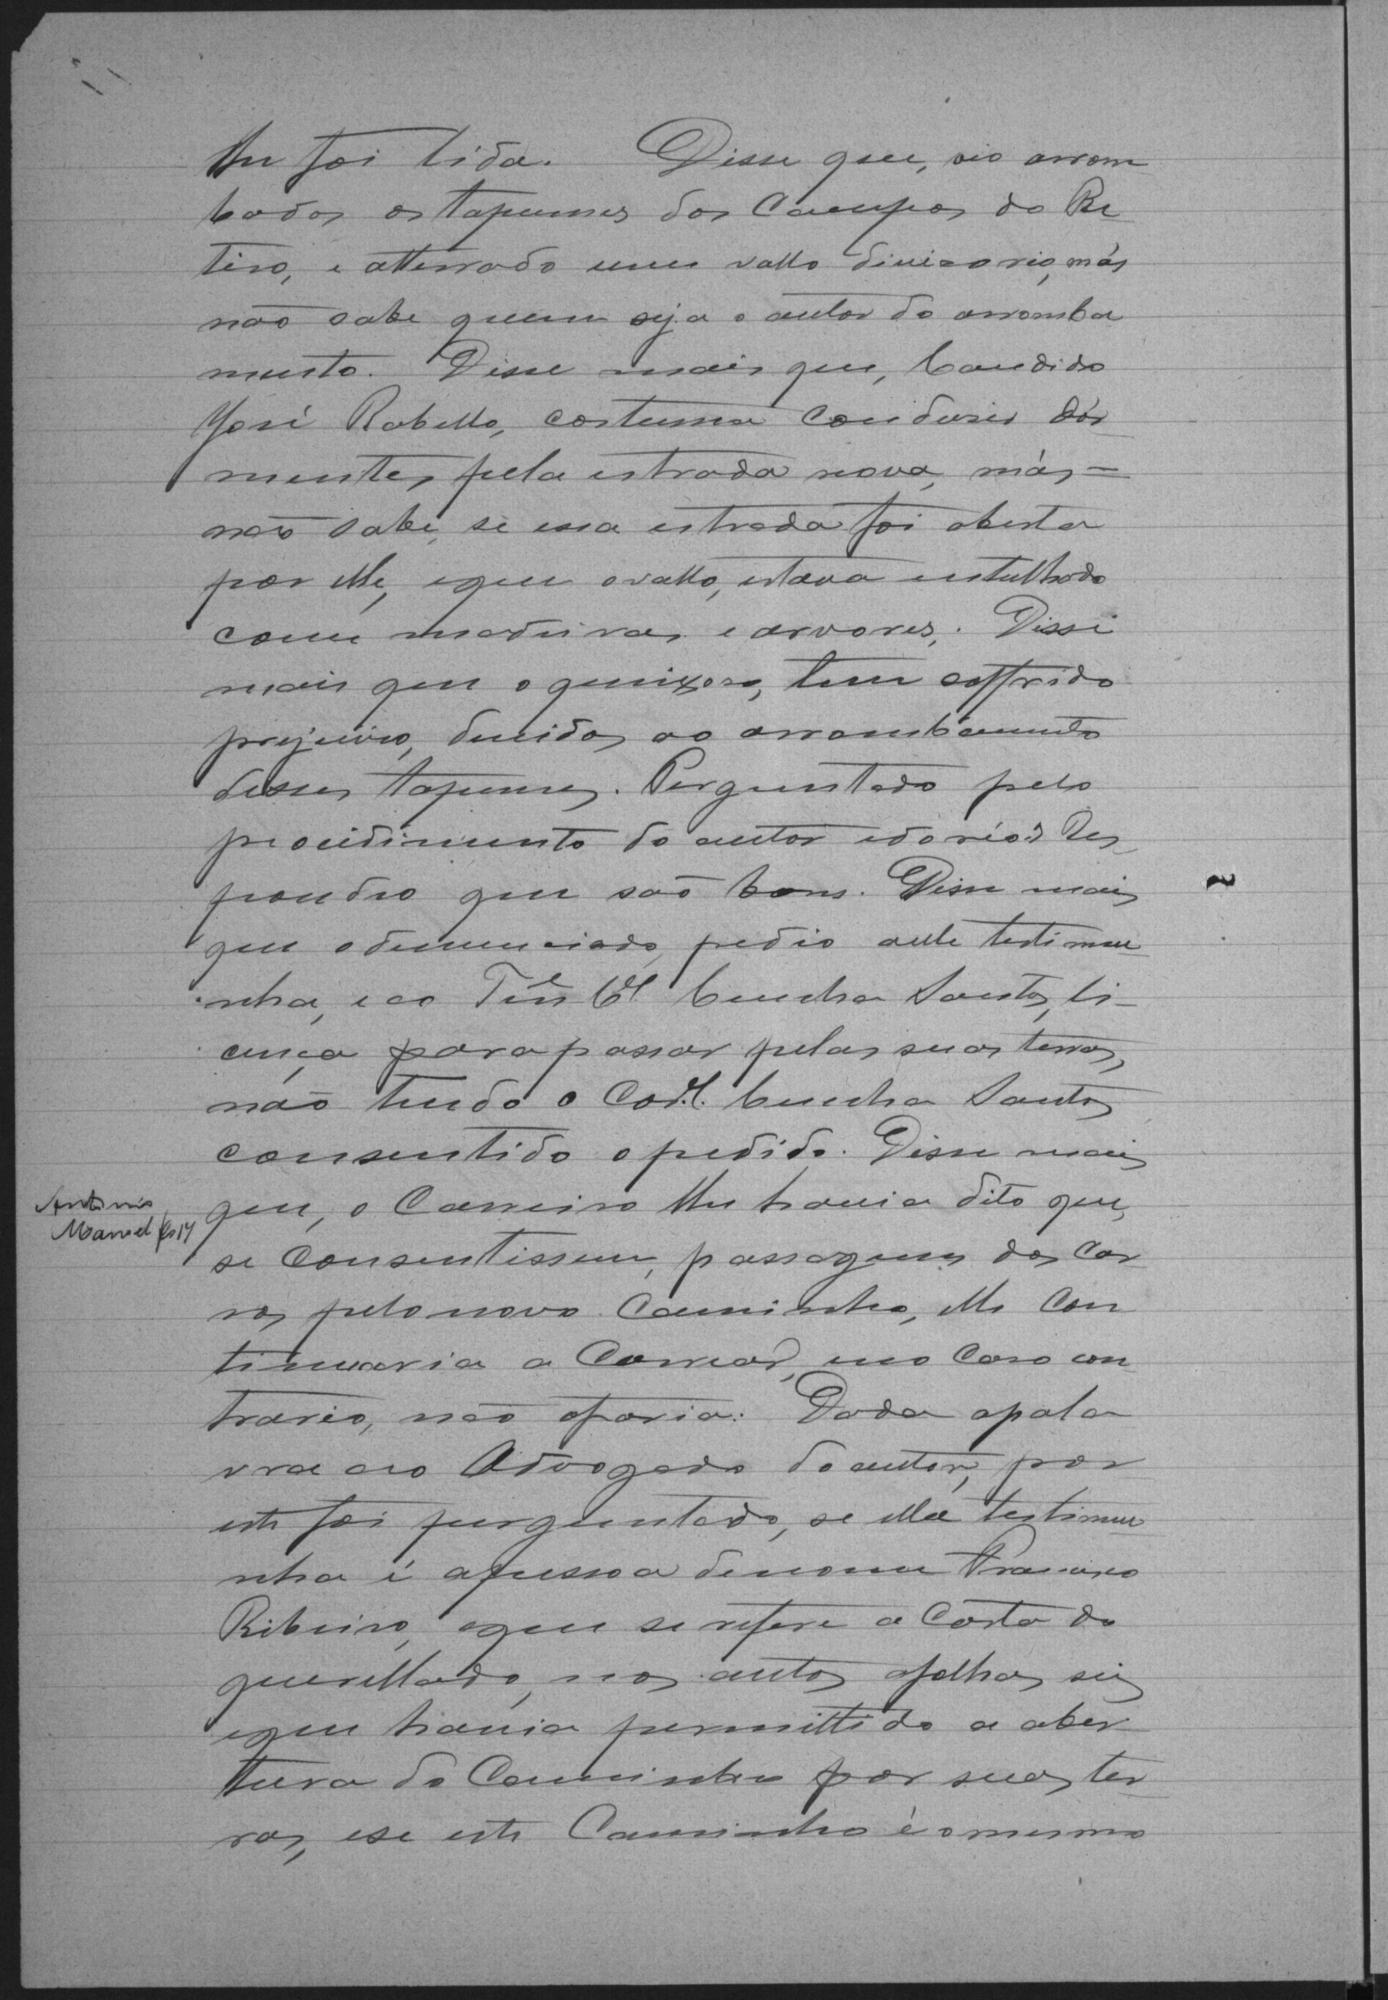 lhe foi lida. Disse que, vio arrom
bados os tapumes dos Campos do Re
tiro, e atterrado um vallo divisorio, más
não sabe quem seja o autor do arromba
mento. Disse mais que, Candido
José Rabello, costuma condusir dór
mentes pela estrada nova, más -
não sabe, se essa estrada foi aberta
por elle, e que o vallo, estava entulhado
com madeiras e arvores. Disse
mais que o queixoso, tem soffrido
prejuizo, devidos ao arrombamento
desses tapumes. Perguntado pelo
procidimento do autor e do réo? Res
pondeo que são bons. Disse mais
que o denunciado, pedio a elle testimu
nha, e ao Tēn Cel Cunha Santos, li-
cença para passar pelas suas terras,
não tendo o Cor.el Cunha Santos
consentido o pedido. Disse mais
Antonio
Manoel fls 14
que, o Carreiro lhe havia dito que,
se consentissem, passagem dos car
ros pelo novo Caminho, elle con
tinuaria a Carrear, e no caso con
trario, não o faria: Dada a pala
vra ao Advogado do autor, por
este foi perguntado, se ella testimu
nha é a pessoa de nome Francisco
Ribeiro, a que se refere a Carta do
querellado, nos autos a folhas seis
e que havia permittido a aber
tura do Caminho por suas ter
ras, e se este Caminho é o mesmo